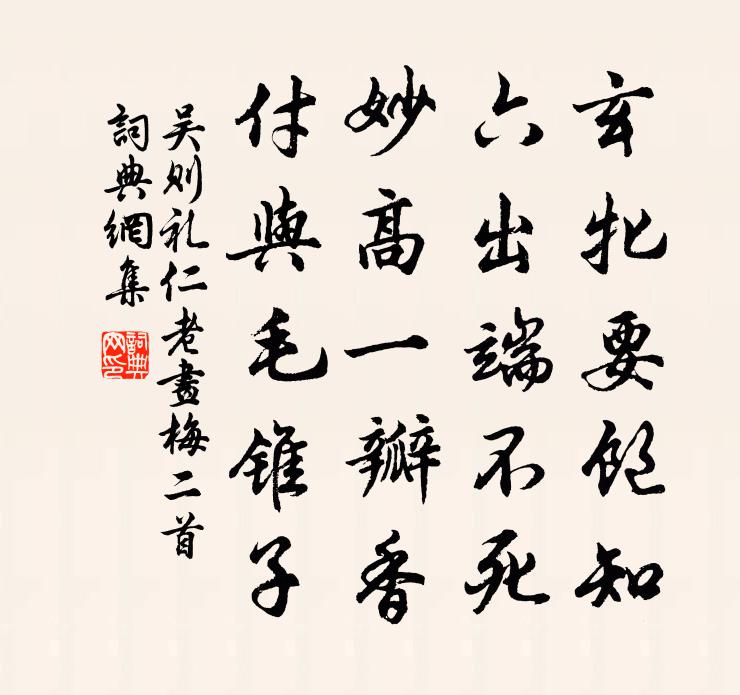 玄牝要飽知
六出端不死
妙高一瓣香
付與毛錐子
吴则礼仁老畫梅二首
詞典網集
詞典网印